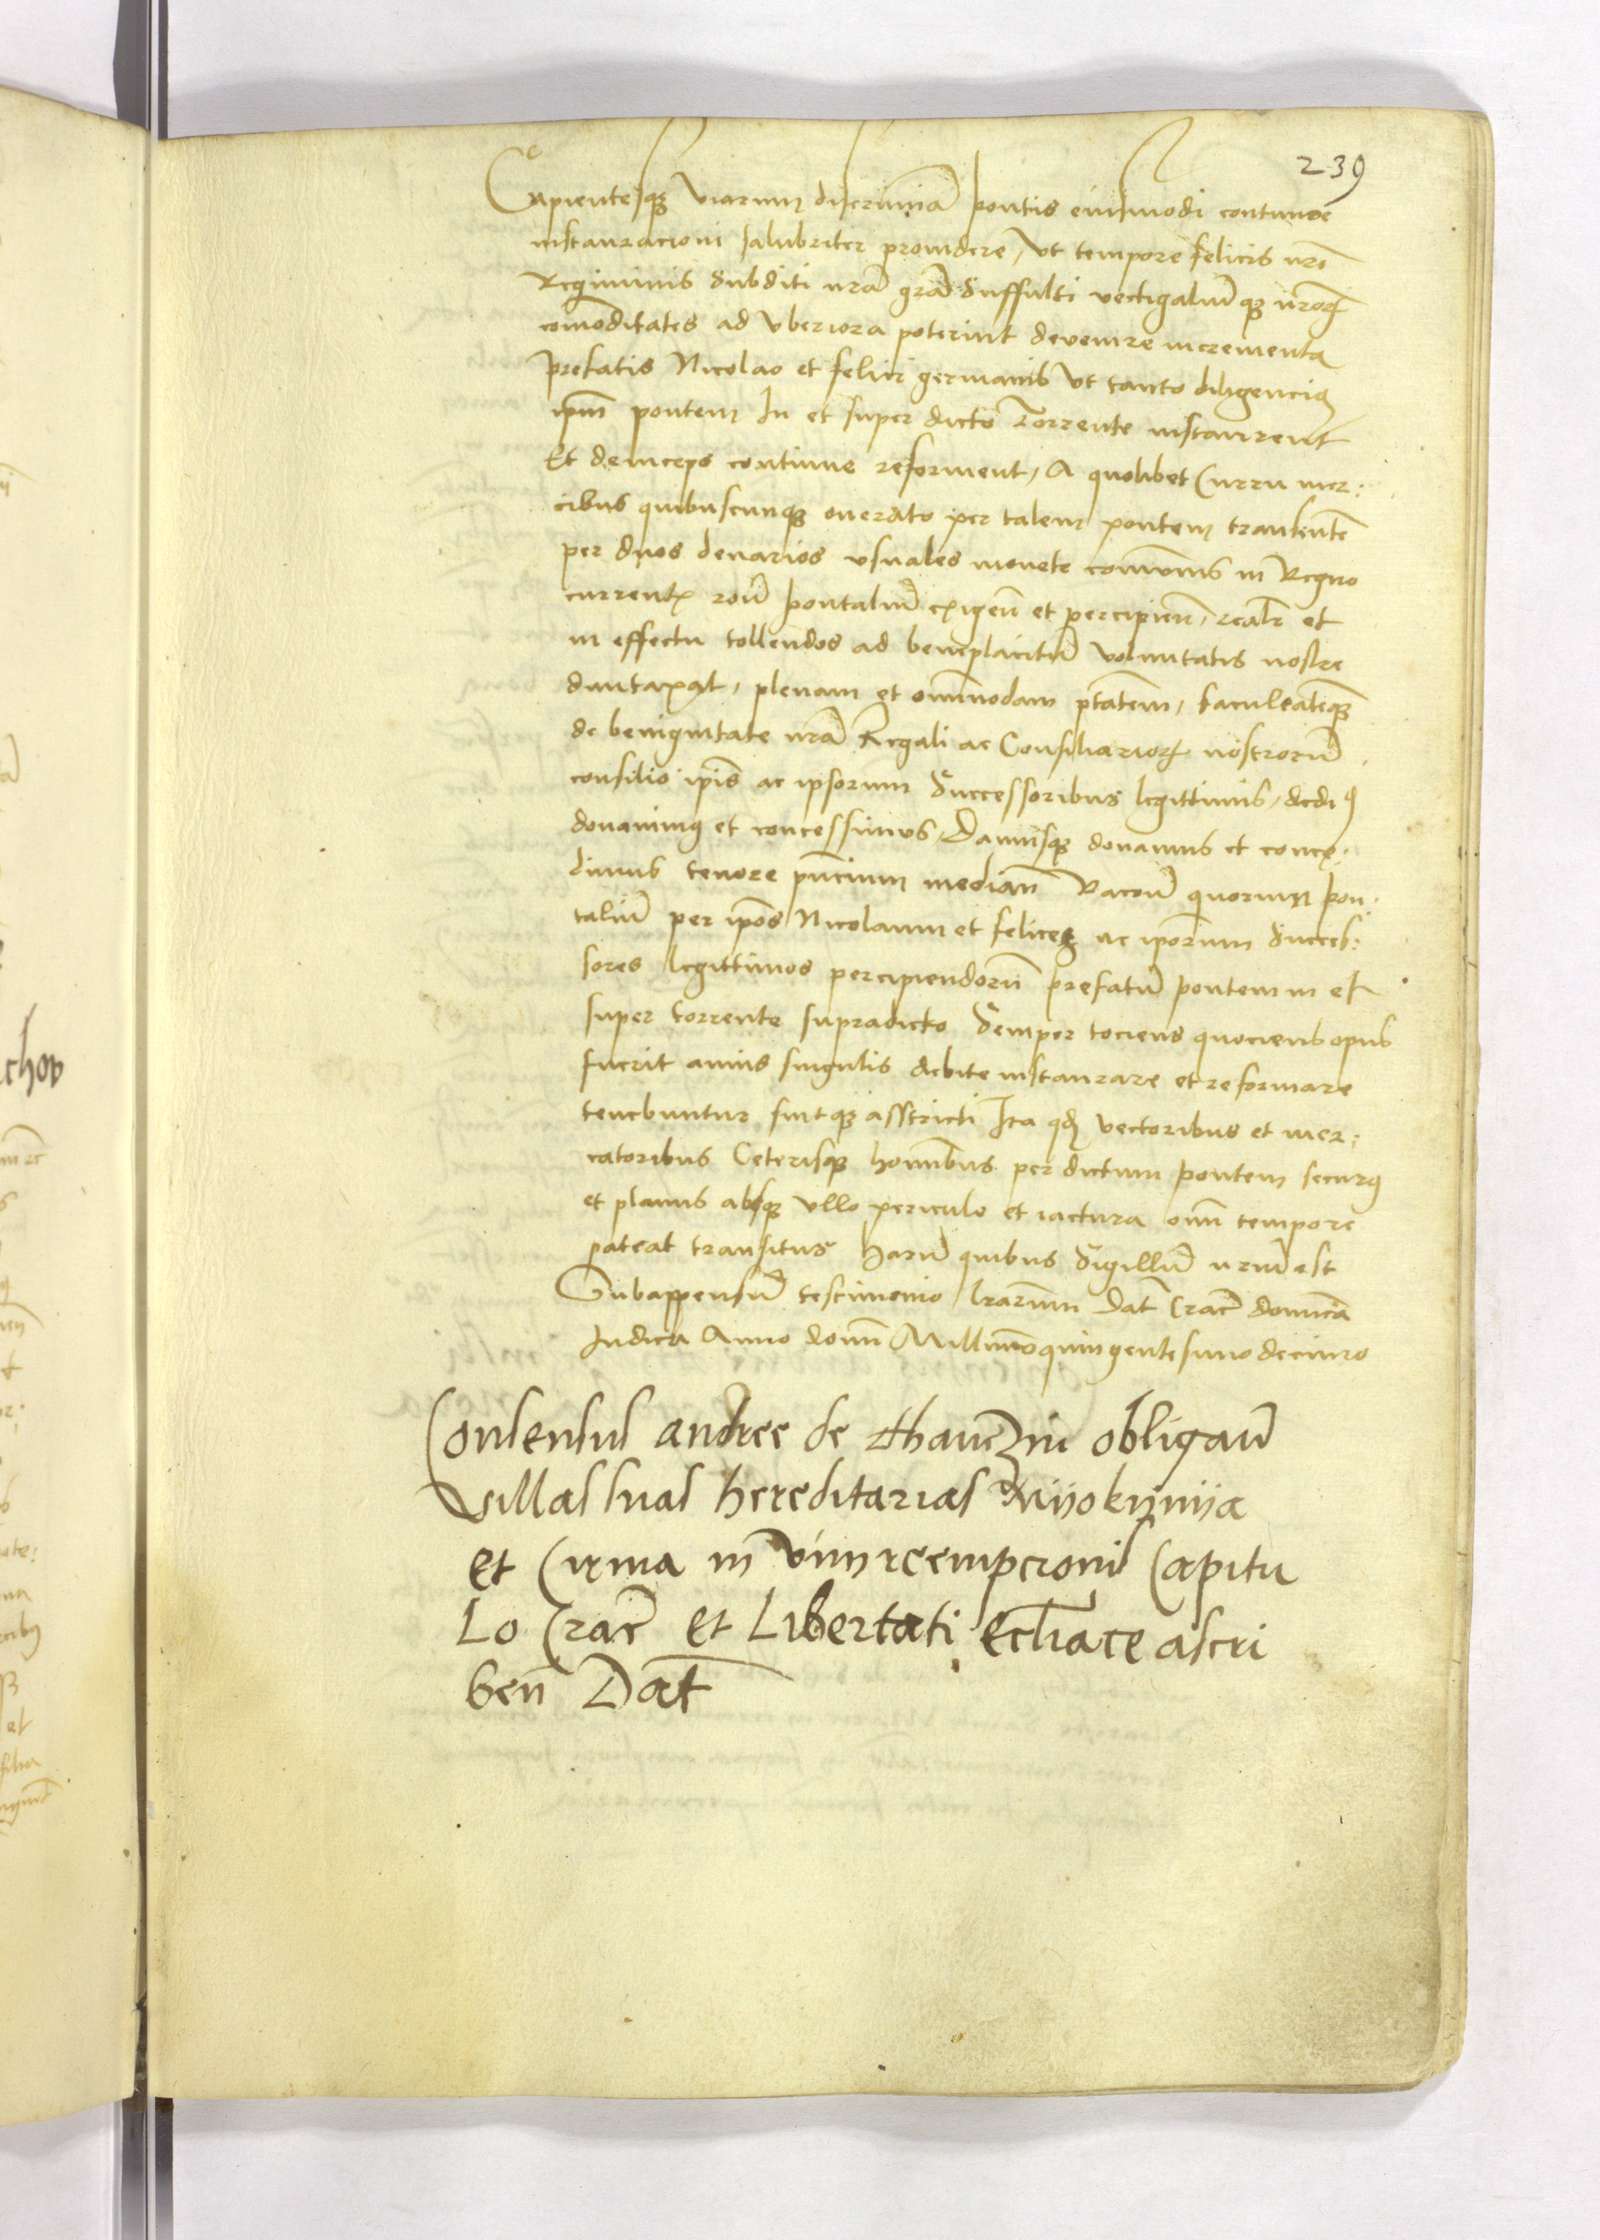 239
Cupientesq3 viarum discrimina pontis eiusmodi continue
instauracioni salubriter providere, Ut tempore felicis nre
Regiminis Subditi nra gra Suffulti vectigaliu q3 nror
comoditates ad Uberiora poterint devenire incrementa
prefatis Nicolao et felici germanis Ut tanto diligencius
ipm pontem In et super dicto Torrente instaurent
Et deinceps continue reforment, A quolibet Curru mer:
cibus quibuscunq3 onerato per talem pontem transeunte
per duos denarios usuales monete comunis in Regno
current roue pontaliu exigen et percipien, realr et
in effectu tollendos ad beneplacitu voluntatis nostre
duntaxat, plenam et omnimodam ptatem, facultateq3
de benignitate nra Regali ac Consiliarior nostroru
consilio ipis ac ipsorum Successoribus legittimis, dedi9
donavimus et concessimus, Damusq3 donamus et conce:
dimus tenore pncium median Racoe quorum pon:
taliu per ipos Nicolaum et felicem ac iporum Succes:
sores legittimos percipiendoru prefatu pontem in et
super torrente supradicto Semper tociens quociens opus
fuerit annis singulis debite instaurare et reformare
tenebuntur sintq3 asstricti Ita qd vectoribus et mer:
catoribus Ceterisq3 hominibus per dictum pontem securus
et planus absq3 ullo periculo et iactura omni tempore
pateat transitus Haru quibus Sigillu nrum est
Subappensu testimonio lrarum Dat Crac dominica
Iudica Anno domi Millimo quingentesimo decimo
Consensus andree de thanczin obligan
villas suas hereditarias
et Cirma in vim reempcionis Capitu
Lo Crac et Libertati eccliasce ascri
ben Dat